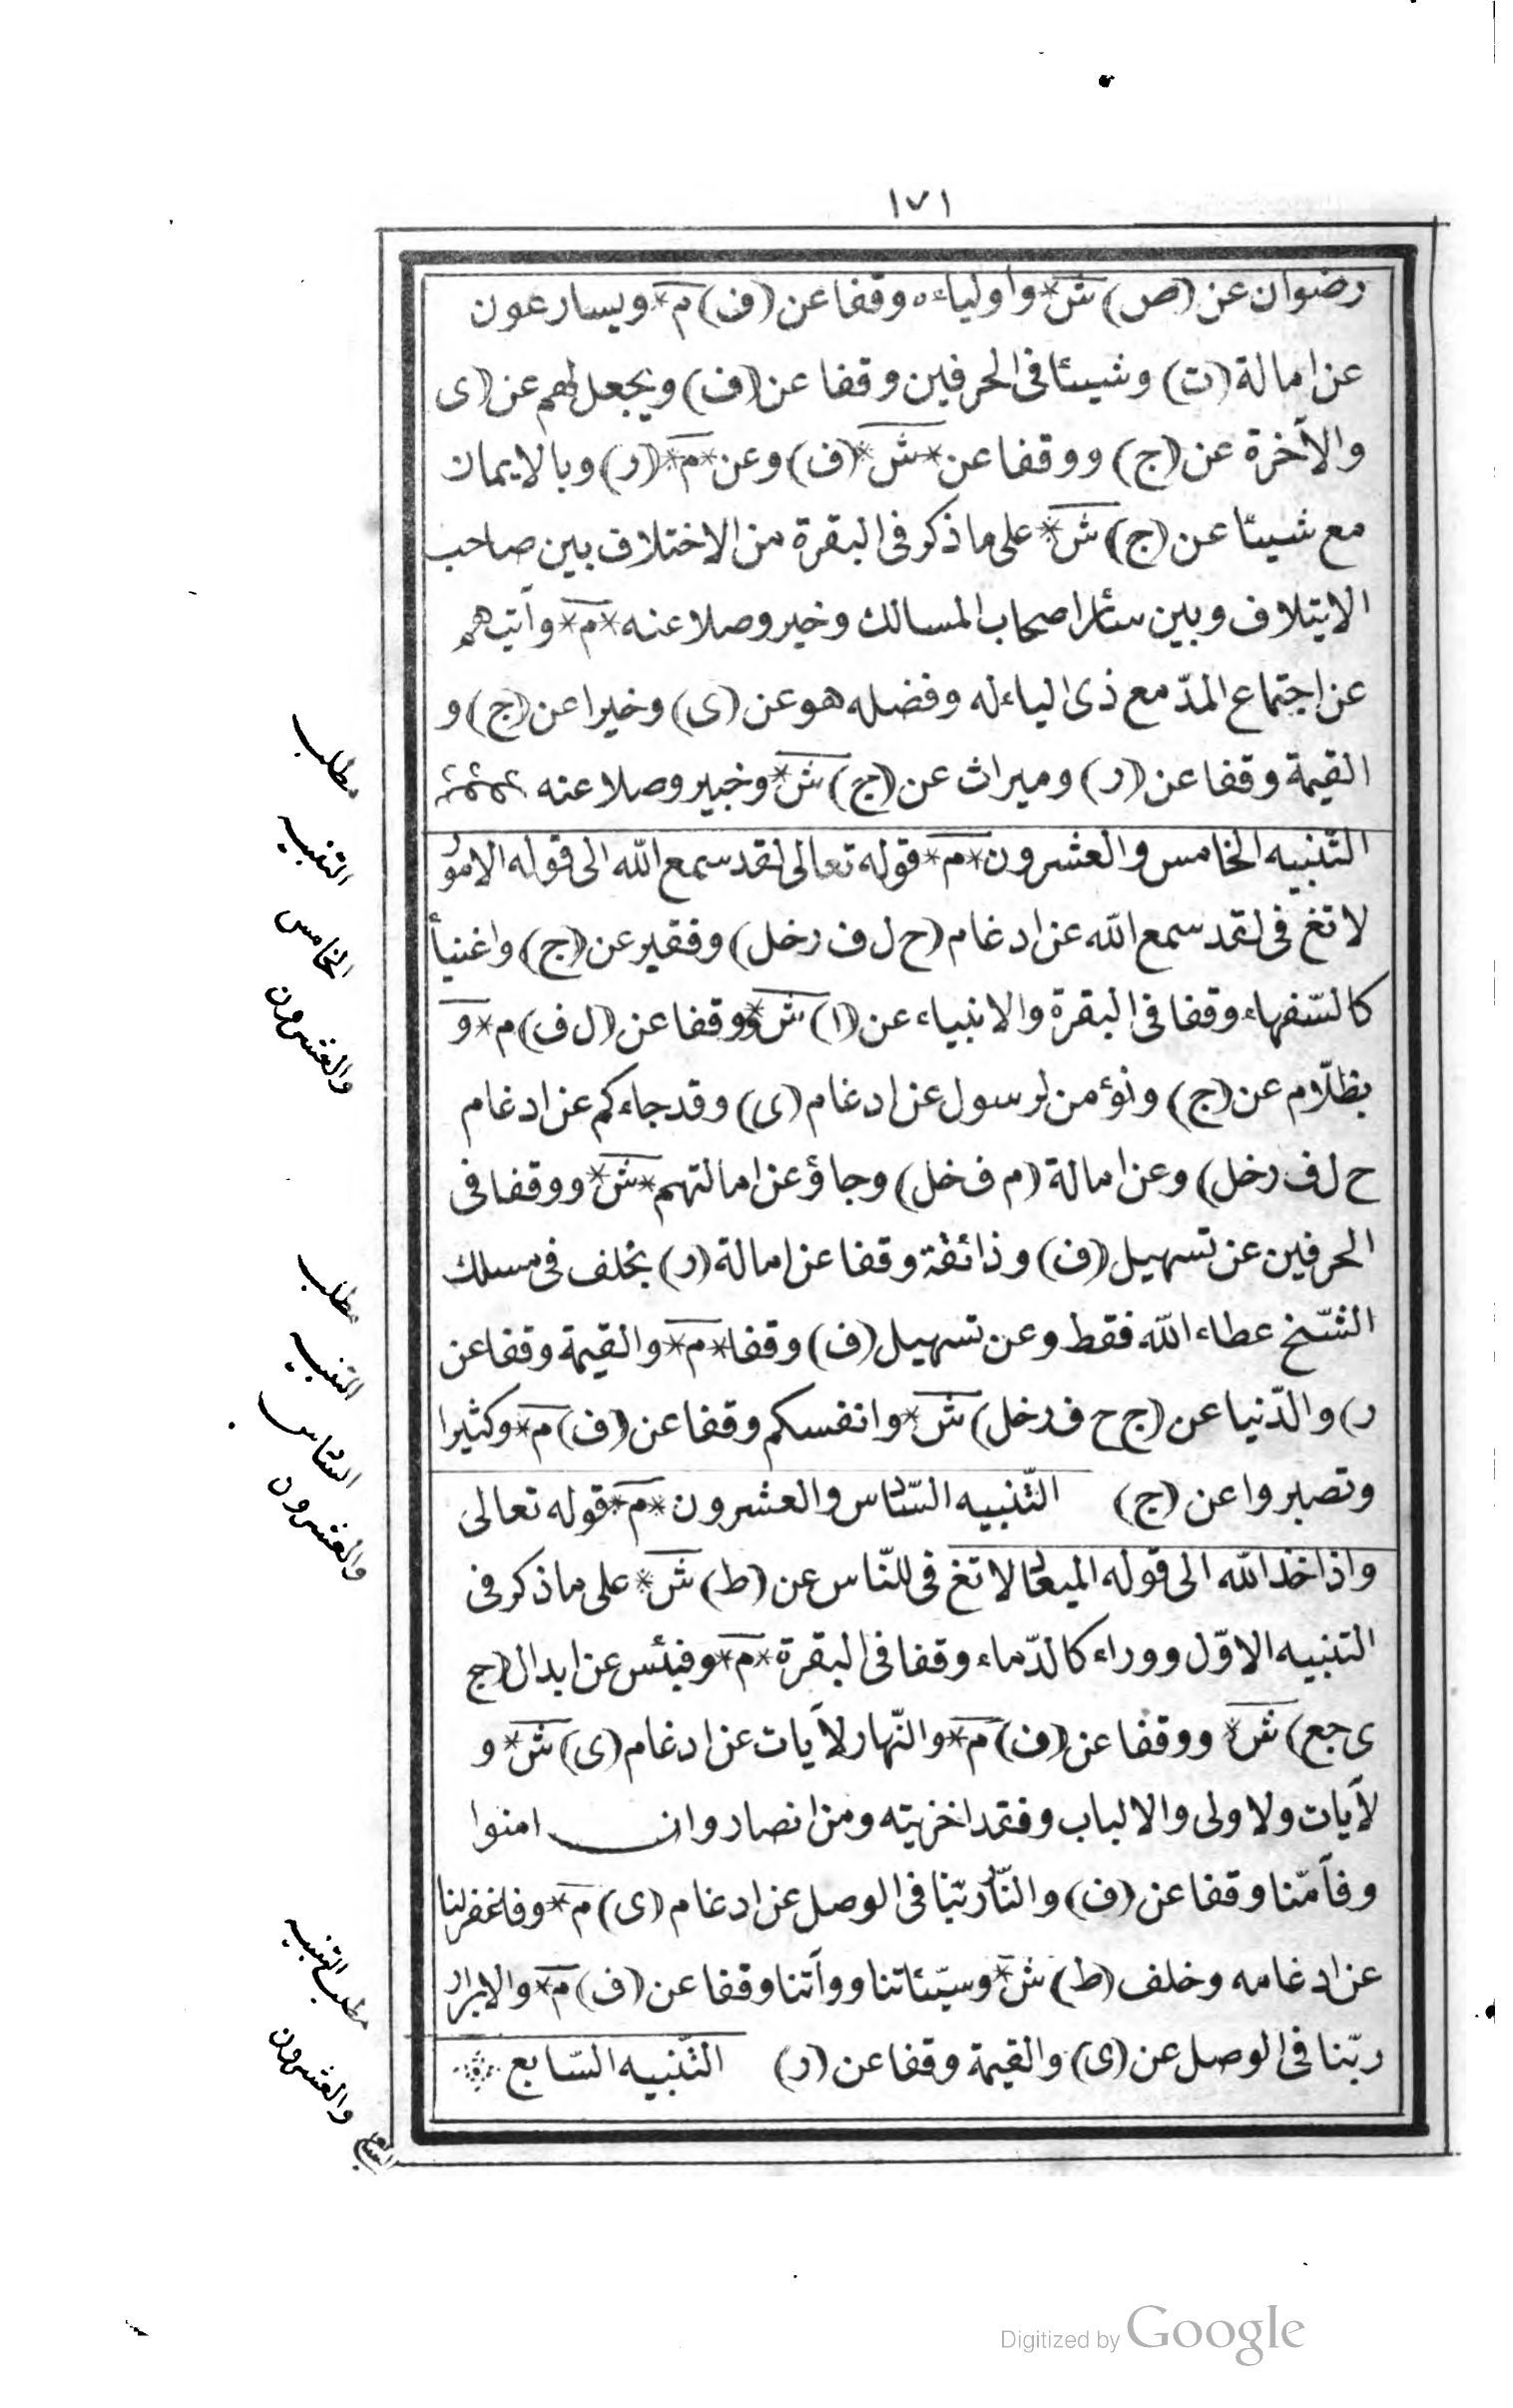 ١٧١
رضوان عن (ص) ش* واولياءه وقفا عن (ف) م* ويسارعون
عن امالة (ت) وشيئا فى الحرفين وقفا عن (ف) ويجعل لهم عن (ى
والآخرة عن (ج) ووقفا عن *ش* (ف) وعن *م* (ر) وبالايمان
مع شيئا عن (ج) ش* على ما ذكر فى البقرة من الاختلاف بين صاحب
الايتلاف وبين سائر اصحاب المسالك وخير وصلا عنه *م* وآتيهم
عن اجتماع المدّ مع ذى الياء له وفضله هو عن (ى) وخيرا عن (ج) و
القيمة وقفا عن (ر) وميراث عن (ج) ش* وخبير وصلا عنه
التّنبيه الخامس والعشرون *م* قوله تعالى لقد سمع الله الى قوله الامور
لا تغ فى لقد سمع الله عن ادغام (ح ل ف رخل) وفقير عن (ج) واغنيأ
كالسّفهاء وقفا فى البقرة والانبياء عن (ا) ش* ووقفا عن (ل ف) م* و
بظلّام عن (ج) ونؤمن لرسول عن ادغام (ى) وقد جاءكم عن ادغام
ح ل ف رخل) وعن امالة (م ف خل) وجاؤ عن امالتهم *ش* ووقفا فى
الحرفين عن تسهيل (ف) وذائقة وقفا عن امالة (ر) بخلف فى مسلك
الشّيخ عطاء الله فقط وعن تسهيل (ف) وقفا *م* والقيمة وقفا عن
ر) والدّنيا عن (ج ح ف رخل) ش* وانفسكم وقفا عن (ف) م* وكثيرا
وتصبروا عن (ج) التّنبيه السّادس والعشرون *م* قوله تعالى
واذ اخذ الله الى قوله الميعاد لا تغ فى للنّاس عن (ط) ش* على ما ذكر فى
التنبيه الاوّل ووراء كالدّماء وقفا فى البقرة *م* وفبئس عن ابدال (ج
ى جع) ش* ووقفا عن (ف) م* والنّهار لآيات عن ادغام (ى) ش* و
لآيات ولاولى والالباب وفقد اخزيته ومن انصار وان امنوا
وفآمنّا وقفا عن (ف) والنّار ربّنا فى الوصل عن ادغام (ى) م* وفاغفر لنا
عن ادغامه وخلف (ط) ش* وسيّئاتنا ووآتنا وقفا عن (ف) م* والابرار
ربّنا فى الوصل عن (ى) والقيمة وقفا عن (ر) التّنبيه السّابع
مطلب
التنبيه
الخامس
والعشرون
مطلب
التنبيه
السّادس
والعشرون
مطلب التنبيه
السابع
والعشرون
Digitized by Google